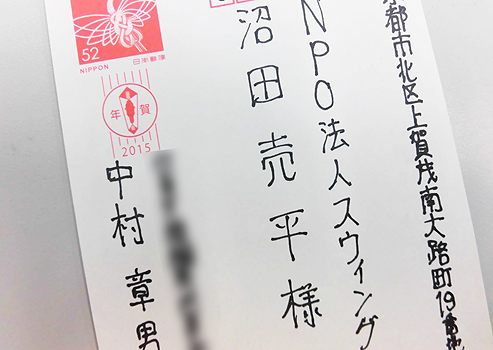 京都市北区上賀茂南大路町19番地
NPO法人スウィング
沼田売平様
52
NIPPON 日本郵便
年賀
2015
中村章男